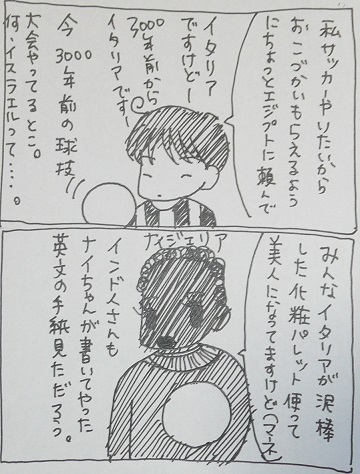 私サッカーやりたいから
おこづかいもらえるよう
にちょっとエジプトに頼んで
イタリア
ですけどー
3000年前から
イタリアですー
今3000年前の球技
大会やってるとこ。
何、イスラエルって…。
みんなイタリアが泥棒
した化粧パレット使って
美人になってますけど(マネ
ナイジェリア
インド人さんも
ナイちゃんが書いてやった
英文の手紙見ただろう。